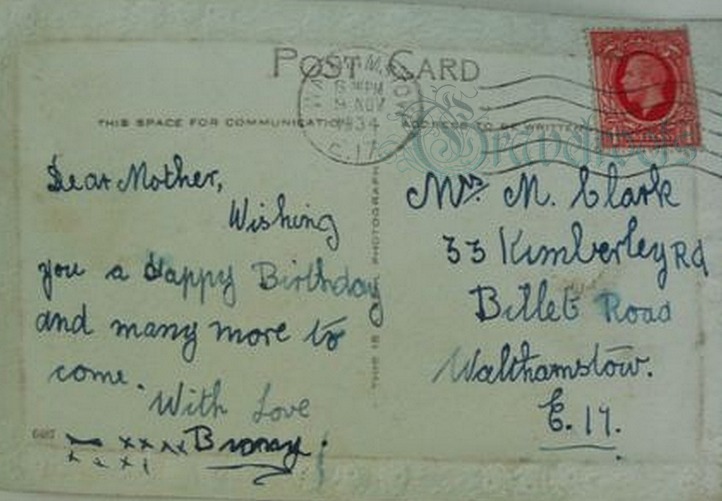 POST CARD
WALTHAMSTOW
PM
9 NOV
1934
E.17
THIS SPACE FOR COMMUNICATION
ADDRESS TO BE WRITTEN
Dear Mother,
Wishing
you a Happy Birthday
and many more to
come.
With Love
xxxx
xxxx
THIS IS A PHOTOGRAPH
Mrs. M. Clark
33 Kimberley Rd
Billet Road
Walthamstow.
E.17.